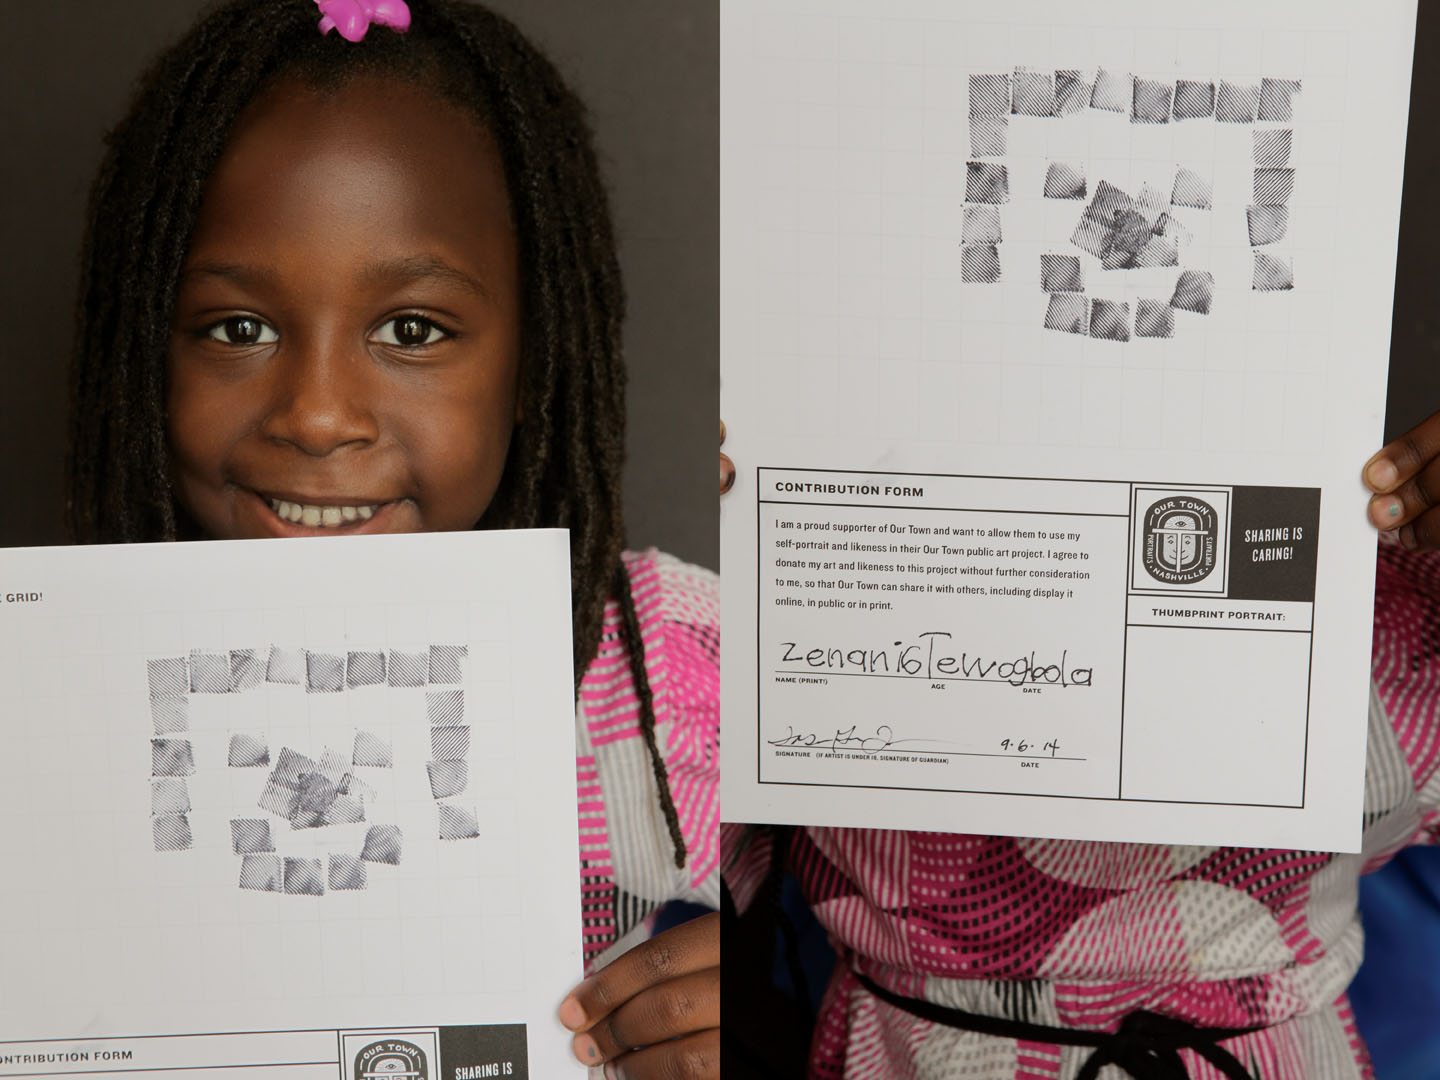 GRID!
ONTRIBUTION FORM
OUR TOWN
SHARING IS
CONTRIBUTION FORM
I am a proud supporter of Our Town and want to allow them to use my
self-portrait and likeness in their Our Town public art project. I agree to
donate my art and likeness to this project without further consideration
to me, so that Our Town can share it with others, including display it
online, in public or in print.
zenani6Tewogbola
NAME (PRINT!) AGE DATE
9·6·14
SIGNATURE (IF ARTIST IS UNDER 18, SIGNATURE OF GUARDIAN) DATE
OUR TOWN
PORTRAITS
PORTRAITS
NASHVILLE
SHARING IS
CARING!
THUMBPRINT PORTRAIT: